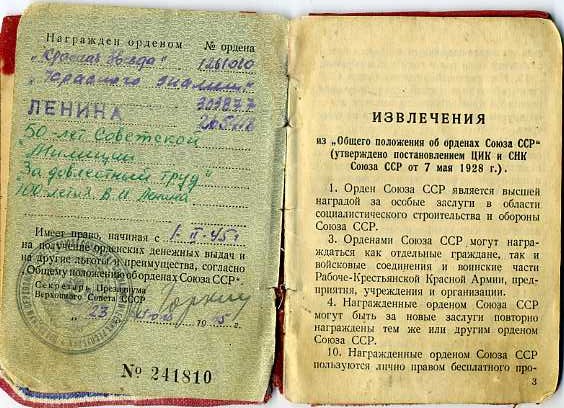 Награжден орденом № ордена
„Красная Звезда" 1261010
„Красного знамени"
ЛЕНИНА
50-лет Советской
"Милиции
За доблестный труд"
100-летия В. И. Ленина
Имеет право, начиная с 1. II 45 г
на получение орденских денежных выдач и
на другие льготы и преимущества, согласно
„Общему положению об орденах Союза ССР"
Секретарь Президиума
Верховного Совета СССР
„23 19 45 г.
№ 241810
ИЗВЛЕЧЕНИЯ
из „Общего положения об орденах Союза ССР"
(утверждено постановлением ЦИК и СНК
Союза ССР от 7 мая 1928 г.).
1. Орден Союза ССР является высшей
наградой за особые заслуги в области
социалистического строительства и обороны
Союза ССР.
3. Орденами Союза ССР могут награж-
даться как отдельные граждане, так и
войсковые соединения и воинские части
Рабоче-Крестьянской Красной Армии, пред-
приятия, учреждения и организации.
4. Награжденные орденом Союза ССР
могут быть за новые заслуги повторно
награждены тем же или другим орденом
Союза ССР.
10. Награжденные орденом Союза ССР
пользуются лично правом бесплатного про-
3